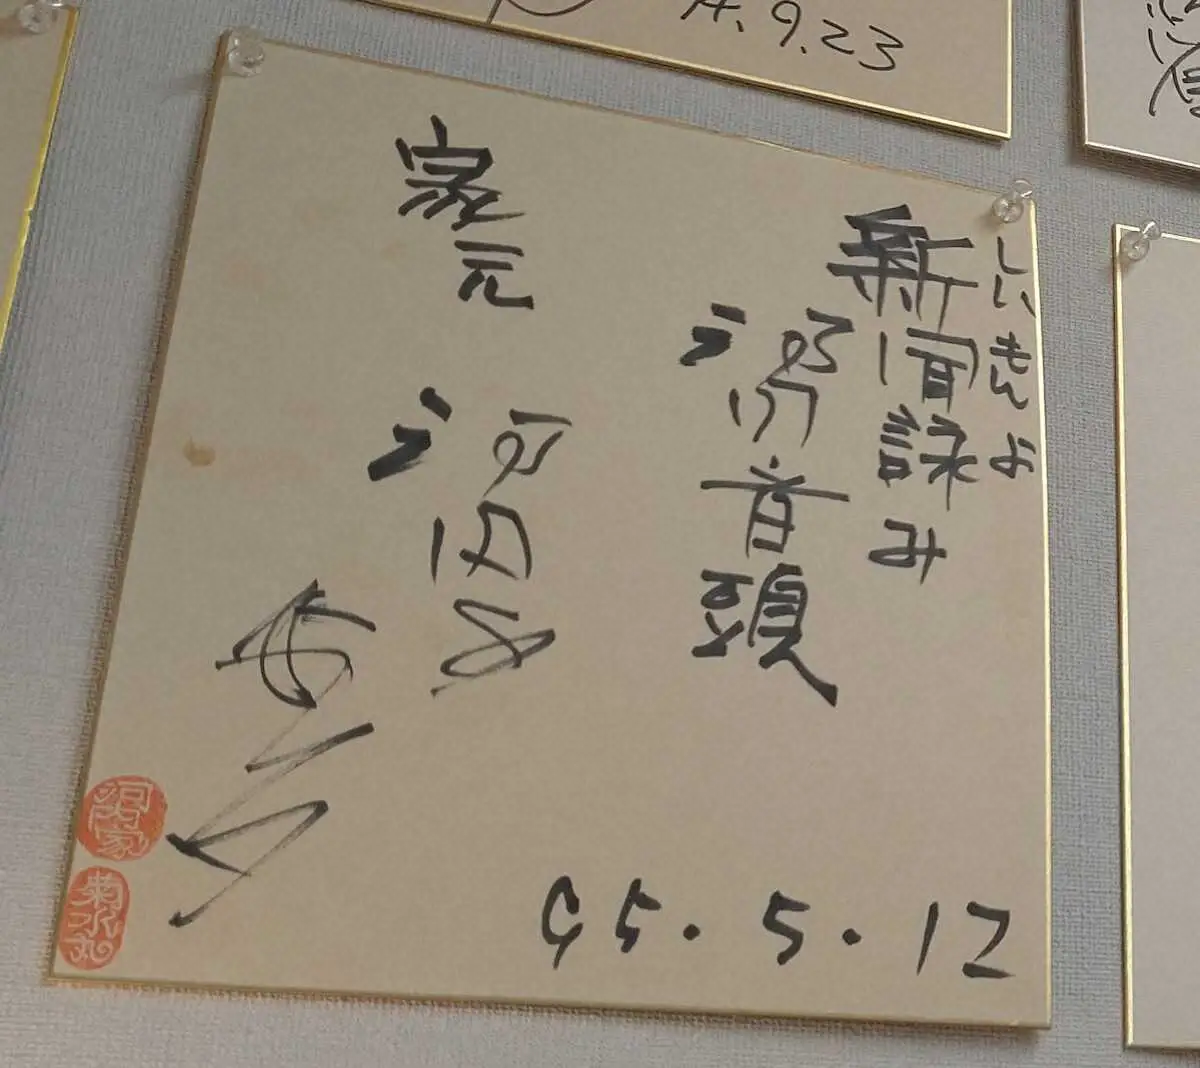 しんもんよ
新聞詠み
河内音頭
家元
河内家
菊水丸
95.5.12
河内家
菊水丸
A.9.23